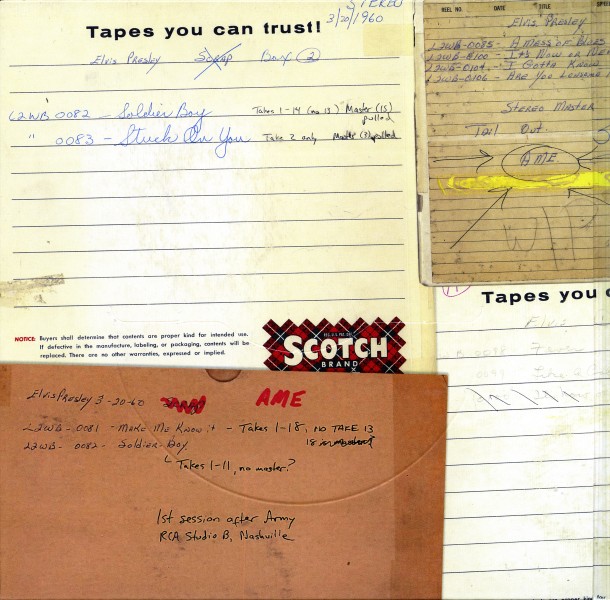 STEREO
3/20/1960
Tapes you can trust!
Elvis Presley Scrap Box 2
L2WB 0082 - Soldier Boy Takes 1-14 (no 13) Master (15) pulled
" 0083 - Stuck On You Take 2 only Master (3) pulled
NOTICE: Buyers shall determine that contents are proper kind for intended use.
If defective in the manufacture, labeling, or packaging, contents will be
replaced. There are no other warranties, expressed or implied.
SCOTCH
BRAND
REEL NO. DATE TITLE
Elvis Presley
L2WB-0085 - A MESS OF BLUES
L2WB-0100 - It's Now or
L2WB-0104 - I Gotta Know
L2WB-0106 - Are You
Stereo Master
Tail Out
AME
Tapes you
Elvis
Elvis Presley 3-20-60 AME
L2WB-0081 - Make Me Know it - Takes 1-18, no TAKE 13
18 is master
L2WB-0082 - Soldier Boy
Takes 1-11, no master?
1st session after Army
RCA Studio B, Nashville